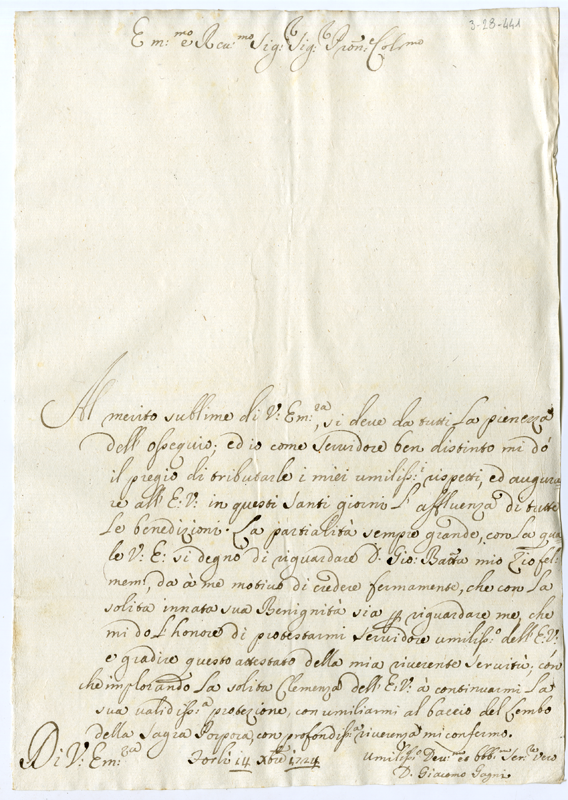 3-28-441
Em:mo e Reu:mo Sig:r Sig:r Pron: Colmo
Al merito sublime di V: Em:za, si deve da tutti la pienezza
dell'ossequio; ed io come servidore ben distinto mi dó
il pregio di tributarle i miei umiliss:i rispetti, ed augura
re all'E: V: in questi santi giorni l'affluenza di tutte
le benedizioni. La partialità sempre grande, con la qua
le V: E: si degnò di riguardare D. Gio: Batta mio Zio fel:
mem:, da à me motivo di credere fermamente, che con la
solita innata sua Benignità sia p riguardare me, che
mi do l'honore di protestarmi servidore umiliss:o dell'E: V:
e gradire questo attestato della mia riverente servitù, con
che implorando la solita Clemenza dell'E: V: à continuarmi la
sua validiss:a protezione, con umiliarmi al baccio del Lembo
della Sagra Porpora, con profondiss:a riverenza mi confermo.
Di V: Em:za Forlì 14 Xbre 1724 Umiliss:o Dev:mo ed obb:mo Ser:re Vero
D. Giacomo